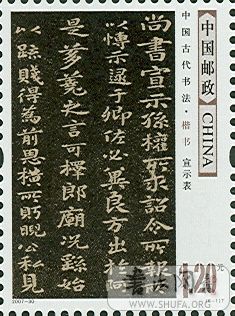 中国邮政 CHINA
中国古代书法·楷书 宣示表
尚書宣示孫權所求詔令所報所
以愽示逮于卿佐必冀良方出於阿
是芻蕘之言可擇郎廟況繇始
以疏賤得為前恩橫所盱睨公私見
1.20元
2007-30
WWW.SHUFA.ORG